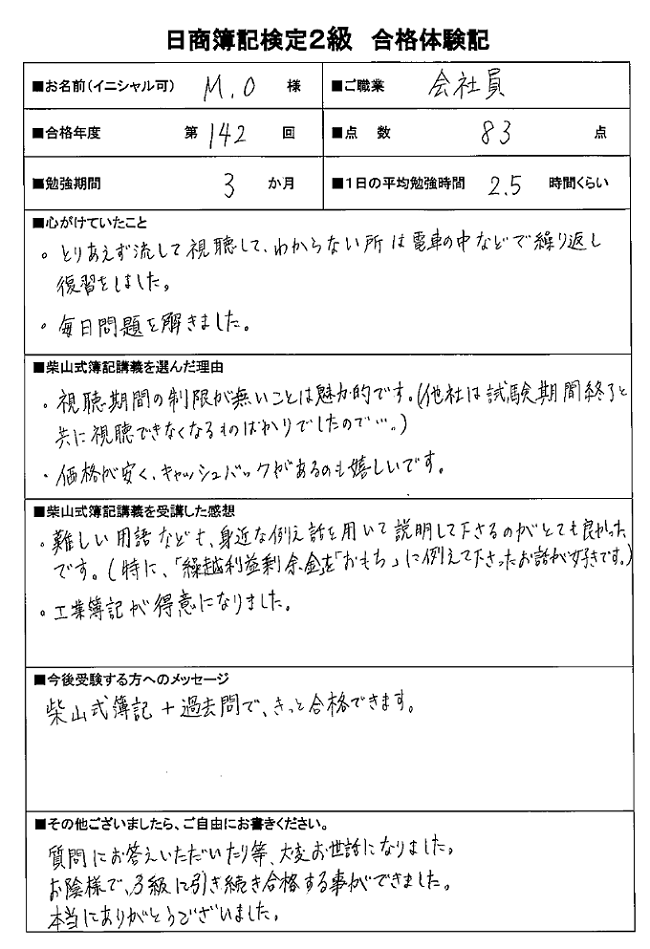 日商簿記検定2級 合格体験記
■お名前(イニシャル可) M.O 様 ■ご職業 会社員
■合格年度 第 142 回 ■点 数 83 点
■勉強期間 3 か月 ■1日の平均勉強時間 2.5 時間くらい
■心がけていたこと
。とりあえず流して視聴して、わからない所は電車の中などで繰り返し
復習をしました。
。毎日問題を解きました。
■柴山式簿記講義を選んだ理由
・視聴期間の制限が無いことは魅力的です。(他社は試験期間終了と
共に視聴できなくなるものばかりでしたので…。)
・価格が安く、キャッシュバックがあるのも嬉しいです。
■柴山式簿記講義を受講した感想
・難しい用語なども、身近な例え話を用いて説明して下さるのがとても良かった
です。(特に、「繰越利益剰余金」を「おもち」に例えて下さったお話が好きです。)
。工業簿記が得意になりました。
■今後受験する方へのメッセージ
柴山式簿記+過去問で、きっと合格できます。
■その他ございましたら、ご自由にお書きください。
質問にお答えいただいたり等、大変お世話になりました。
お陰様で、3級に引き続き合格する事ができました。
本当にありがとうございました。